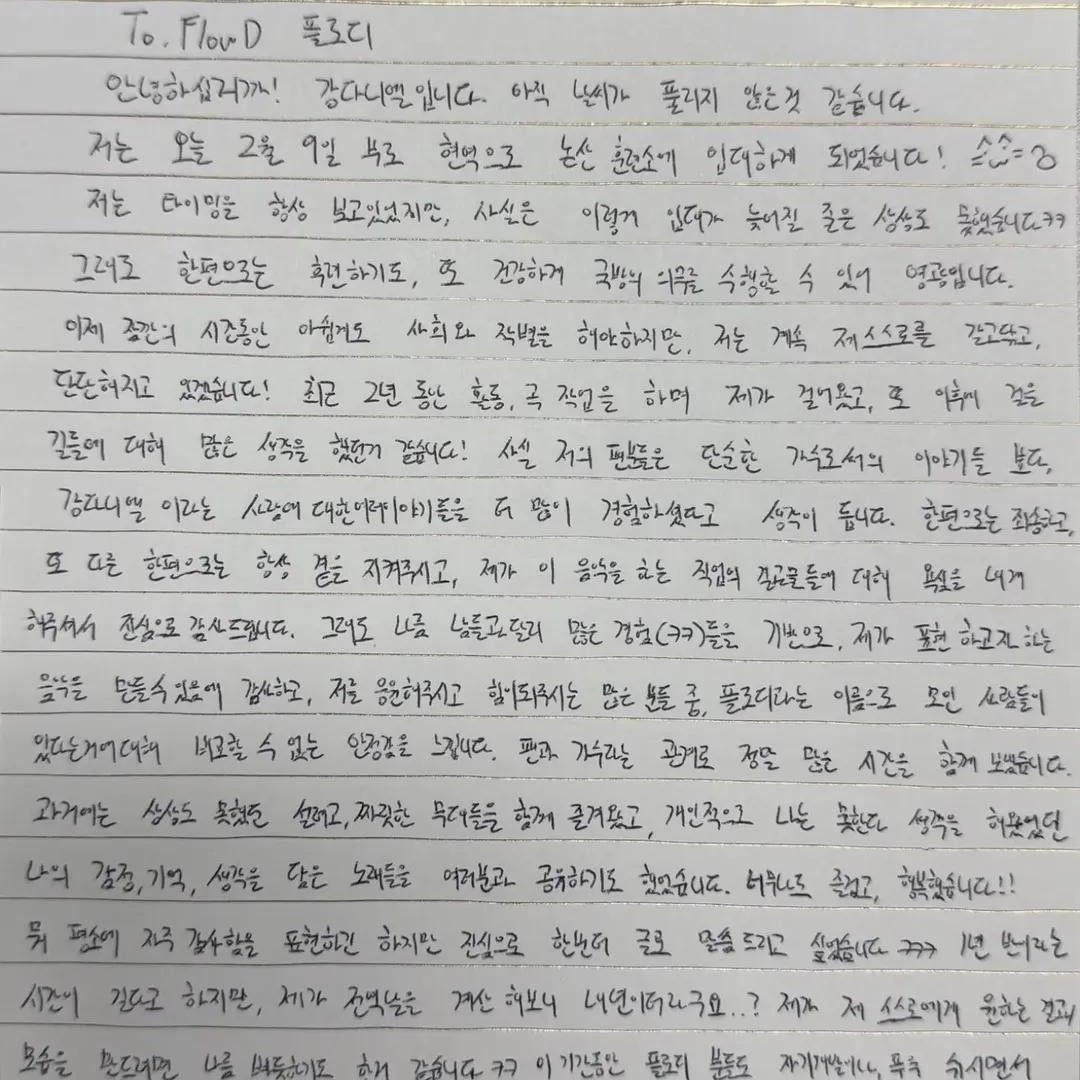 To. FlowD 플로디
안녕하십니까! 강다니엘입니다. 아직 날씨가 풀리지 않은것 같습니다.
저는 오늘 2월 9일 부로 현역으로 논산 훈련소에 입대하게 되었습니다!
저는 타이밍을 항상 보고있었지만, 사실은 이렇게 입대가 늦어질 줄은 상상도 못했습니다ㅋㅋ
그래도 한편으로는 후련하기도, 또 건강하게 국방의 의무를 수행할 수 있어 영광입니다.
이제 잠깐의 시간동안 아쉽게도 사회와 작별을 해야하지만, 저는 계속 제 스스로를 갈고닦고,
단단해지고 있겠습니다! 최근 2년 동안 활동, 곡 작업을 하며 제가 걸어왔고, 또 이후에 걸을
길들에 대해 많은 생각을 했던거 같습니다! 사실 저의 팬분들은 단순한 가수로서의 이야기들 보다,
강다니엘 이라는 사람에 대한 이야기들을 더 많이 경험하셨다고 생각이 듭니다. 한편으로는 죄송하고,
또 다른 한편으로는 항상 곁을 지켜주시고, 제가 이 음악을 하는 직업의 결과물들에 대해 욕심을 내게
해주셔서 진심으로 감사드립니다. 그래도 나름 남들과 달리 많은 경험(ㅋㅋ)들을 기반으로, 제가 표현 하고자 하는
음악을 만들수있음에 감사하고, 저를 응원해주시고 힘이되주시는 많은 분들 중, 플로디라는 이름으로 모인 사람들이
있다는거에대해 비교할 수 없는 안정감을 느낍니다. 팬과 가수라는 관계로 정말 많은 시간을 함께 보냈습니다.
과거에는 상상도 못했던 설레고, 짜릿한 무대들을 함께 즐겨왔고, 개인적으로 나는 못한다 생각을 해왔었던
나의 감정, 기억, 생각을 담은 노래들을 여러분과 공유하기도 했었습니다. 너무나도 즐겁고, 행복했습니다!!
뭐 평소에 자주 감사함을 표현하긴 하지만 진심으로 한번더 글로 말씀드리고 싶었습니다 ㅋㅋㅋ 1년 반이라는
시간이 길다고 하지만, 제가 전역날을 계산 해보니 내년이더라구요..? 제가 제 스스로에게 원하는 결과
모습을 만드려면 나름 빠듯하기도 한거 같습니다 ㅋㅋ 이 기간동안 플로디 분들도 자기개발이나, 푹푹 쉬시면서